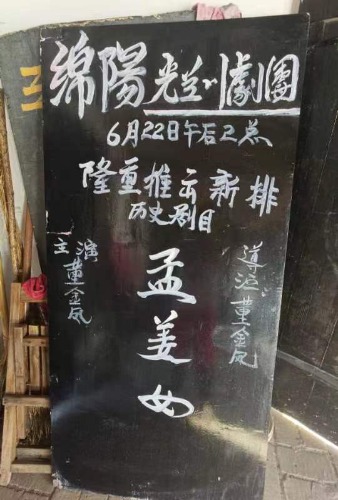 綿陽劇團
6月22日午后2点
隆重推出新排
历史剧目
主演
董金凤
孟姜女
導演:董金凤
三